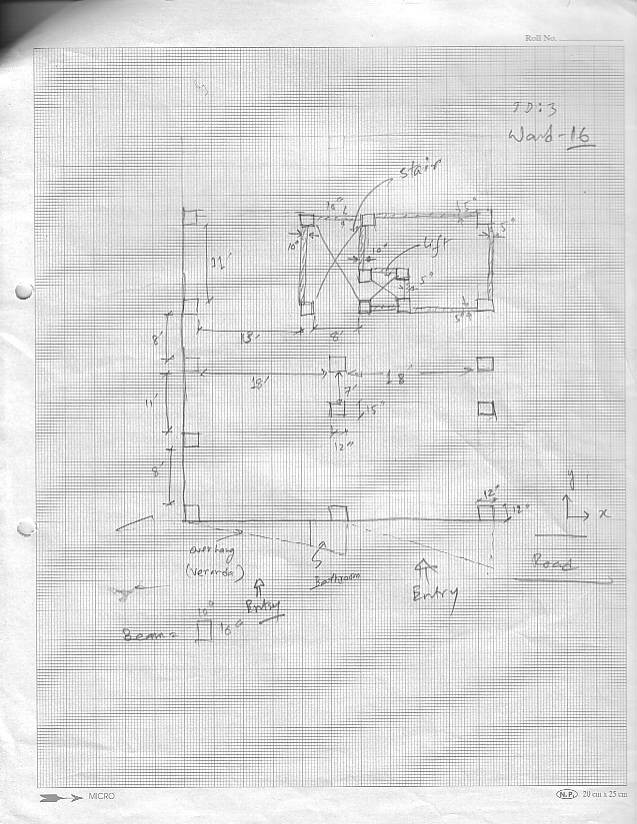 Roll No.
ID:3
Ward-16
stair
10"
5"
5"
10"
lift
10"
11'
5"
5"
8'
13'
8'
18'
18'
7'
11'
15"
12"
8'
12"
12"
y
x
Road
overhang
(veranda)
Bathroom
Entry
Entry
10"
Beam =
MICRO
N.P. 20 cm x 25 cm